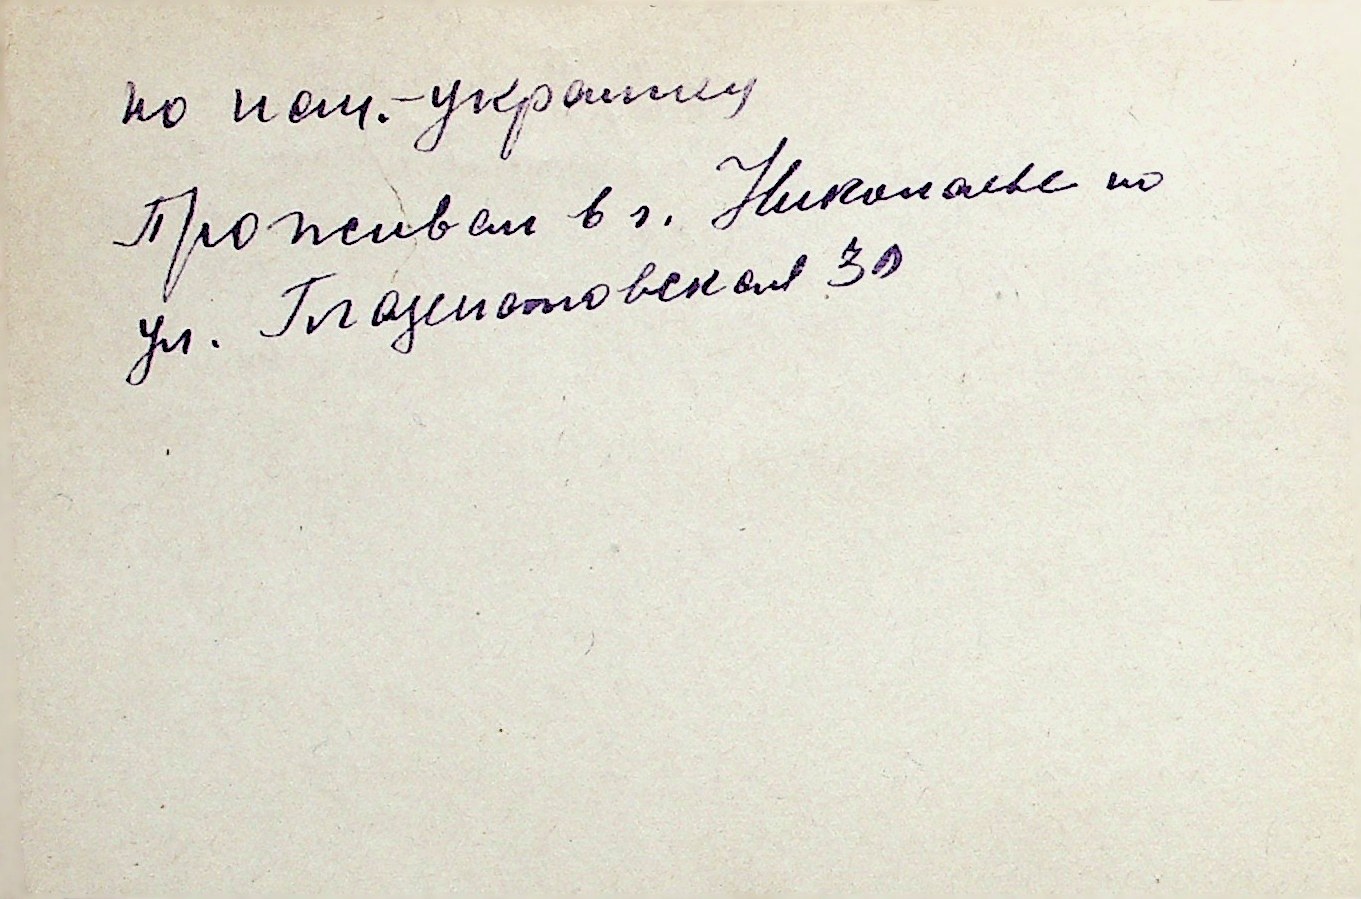 по нац.-украинец
Проживал в г. Николаеве по
ул. Глазенаповская 39